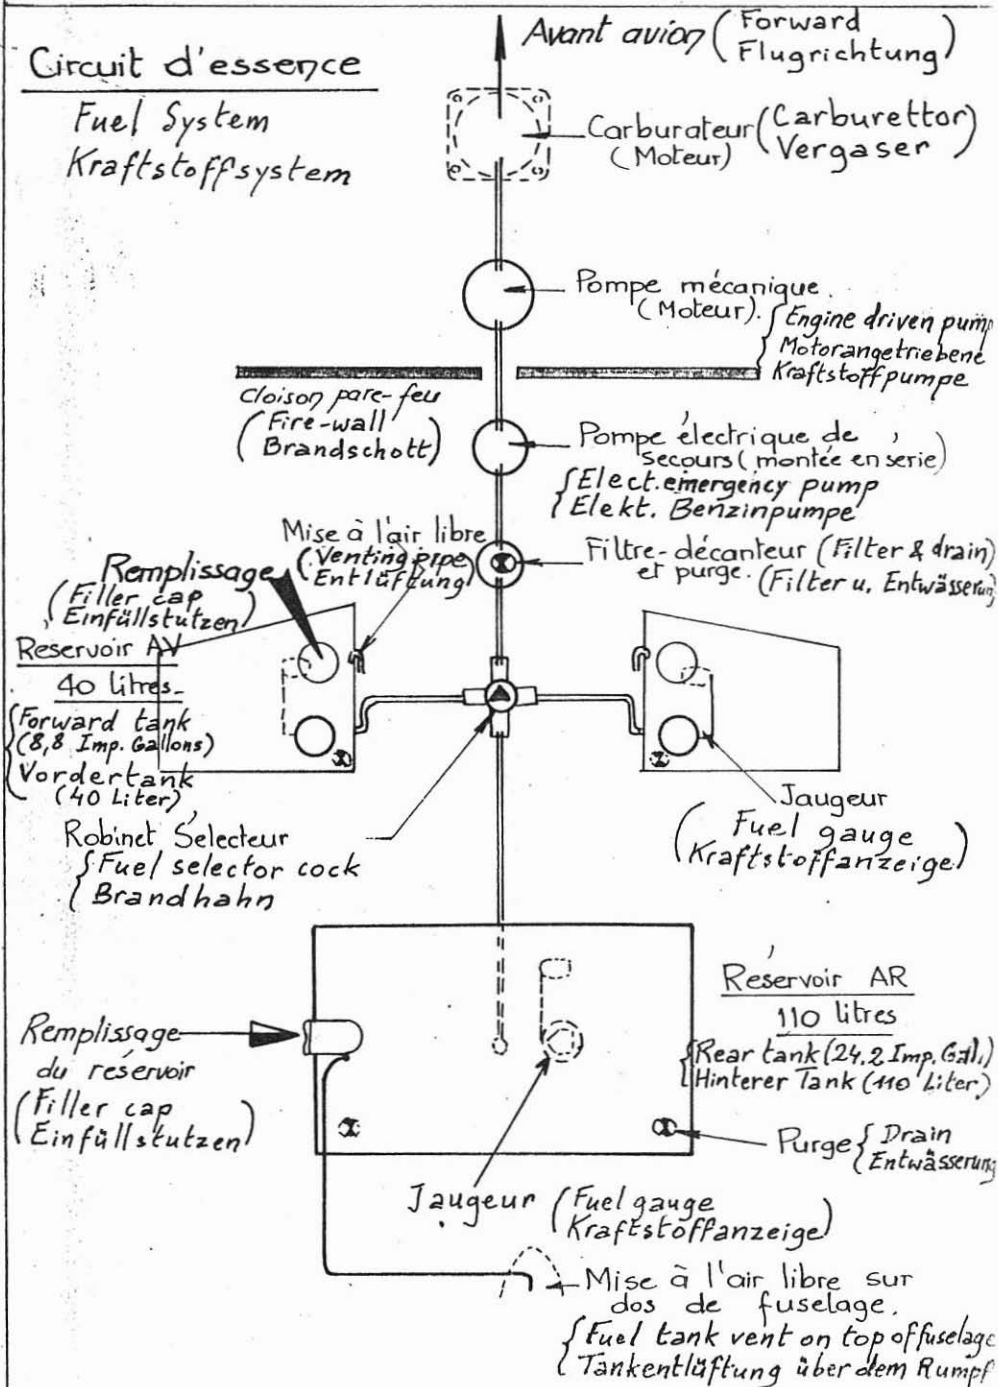 Circuit d'essence
Fuel System
Kraftstoffsystem
Avant avion (Forward
Flugrichtung)
Carburateur (Carburettor)
(Moteur) (Vergaser)
Pompe mécanique.
(Moteur).
{Engine driven pump
Motorangetriebene
Kraftstoffpumpe
Cloison pare-feu
(Fire-wall
Brandschott)
Pompe électrique de
secours (montée en série)
{Elect. emergency pump
Elekt. Benzinpumpe
Mise à l'air libre
(Venting pipe
Entlüftung)
Filtre-décanteur (Filter & drain)
et purge. (Filter u. Entwässerung
Remplissage
(Filler cap
Einfüllstutzen)
Reservoir AV
40 litres
{Forward tank
(8,8 Imp. Gallons)
Vordertank
(40 Liter)
Robinet Sélecteur
{Fuel selector cock
Brandhahn
Jaugeur
(Fuel gauge
Kraftstoffanzeige)
Réservoir AR
110 litres
{Rear tank (24,2 Imp. Gal.)
Hinterer Tank (110 Liter)
Remplissage
du réservoir
(Filler cap
Einfüllstutzen)
Purge {Drain
Entwässerung
Jaugeur (Fuel gauge
Kraftstoffanzeige)
Mise à l'air libre sur
dos de fuselage.
{Fuel tank vent on top of fuselage
Tankentlüftung über dem Rumpf